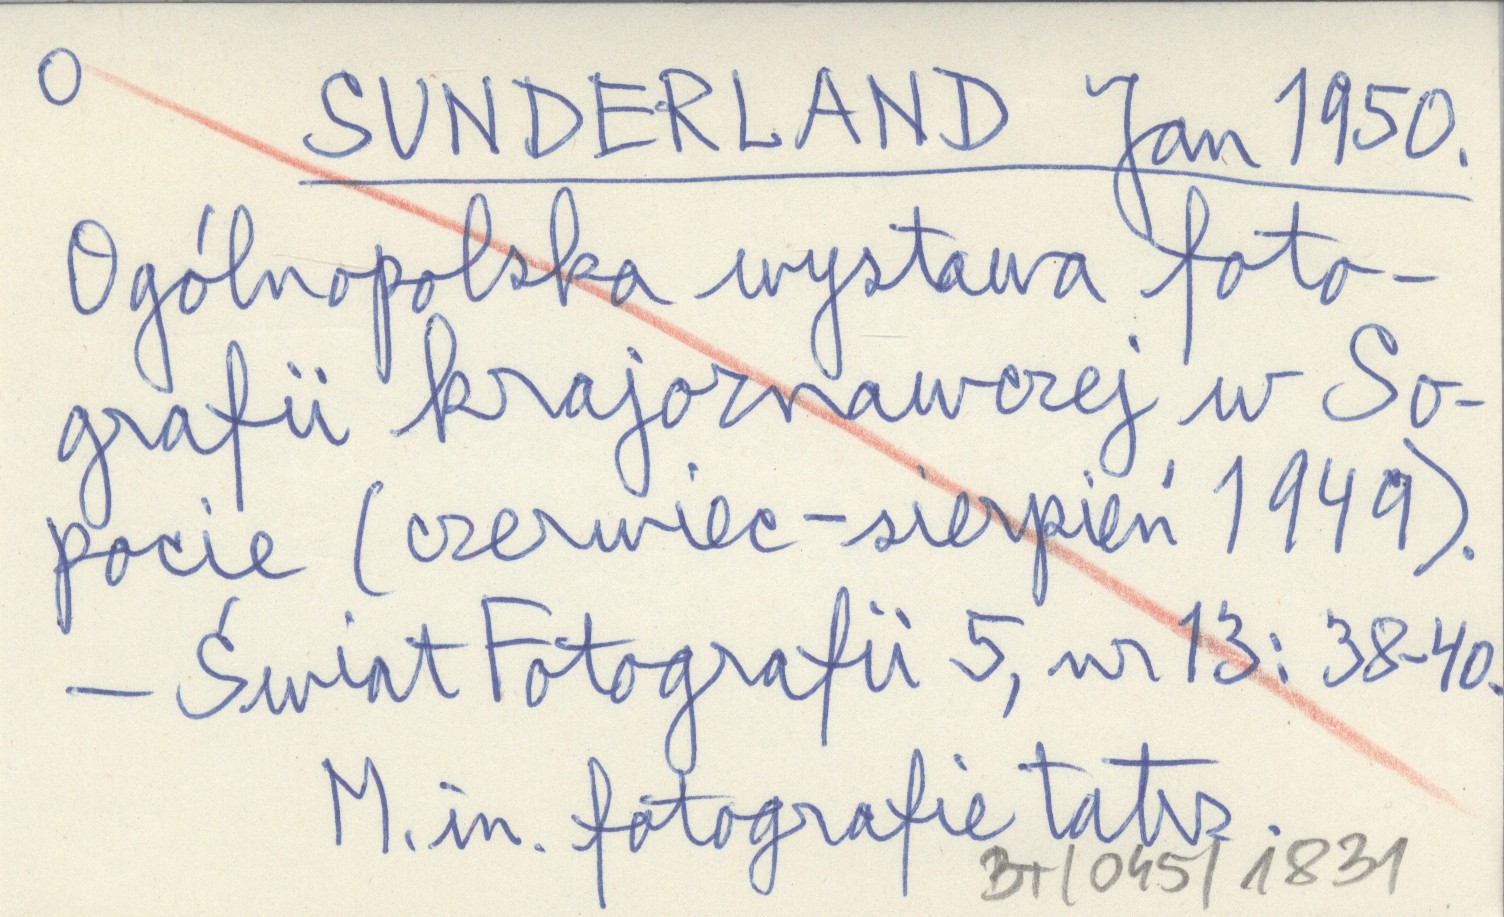 O SUNDERLAND Jan 1950.
Ogólnopolska wystawa foto-
grafii krajoznawczej w So-
pocie (czerwiec-sierpień 1949).
— Świat Fotografii 5, nr 13: 38-40.
M. in. fotografie tatrz.
BT/045/1831